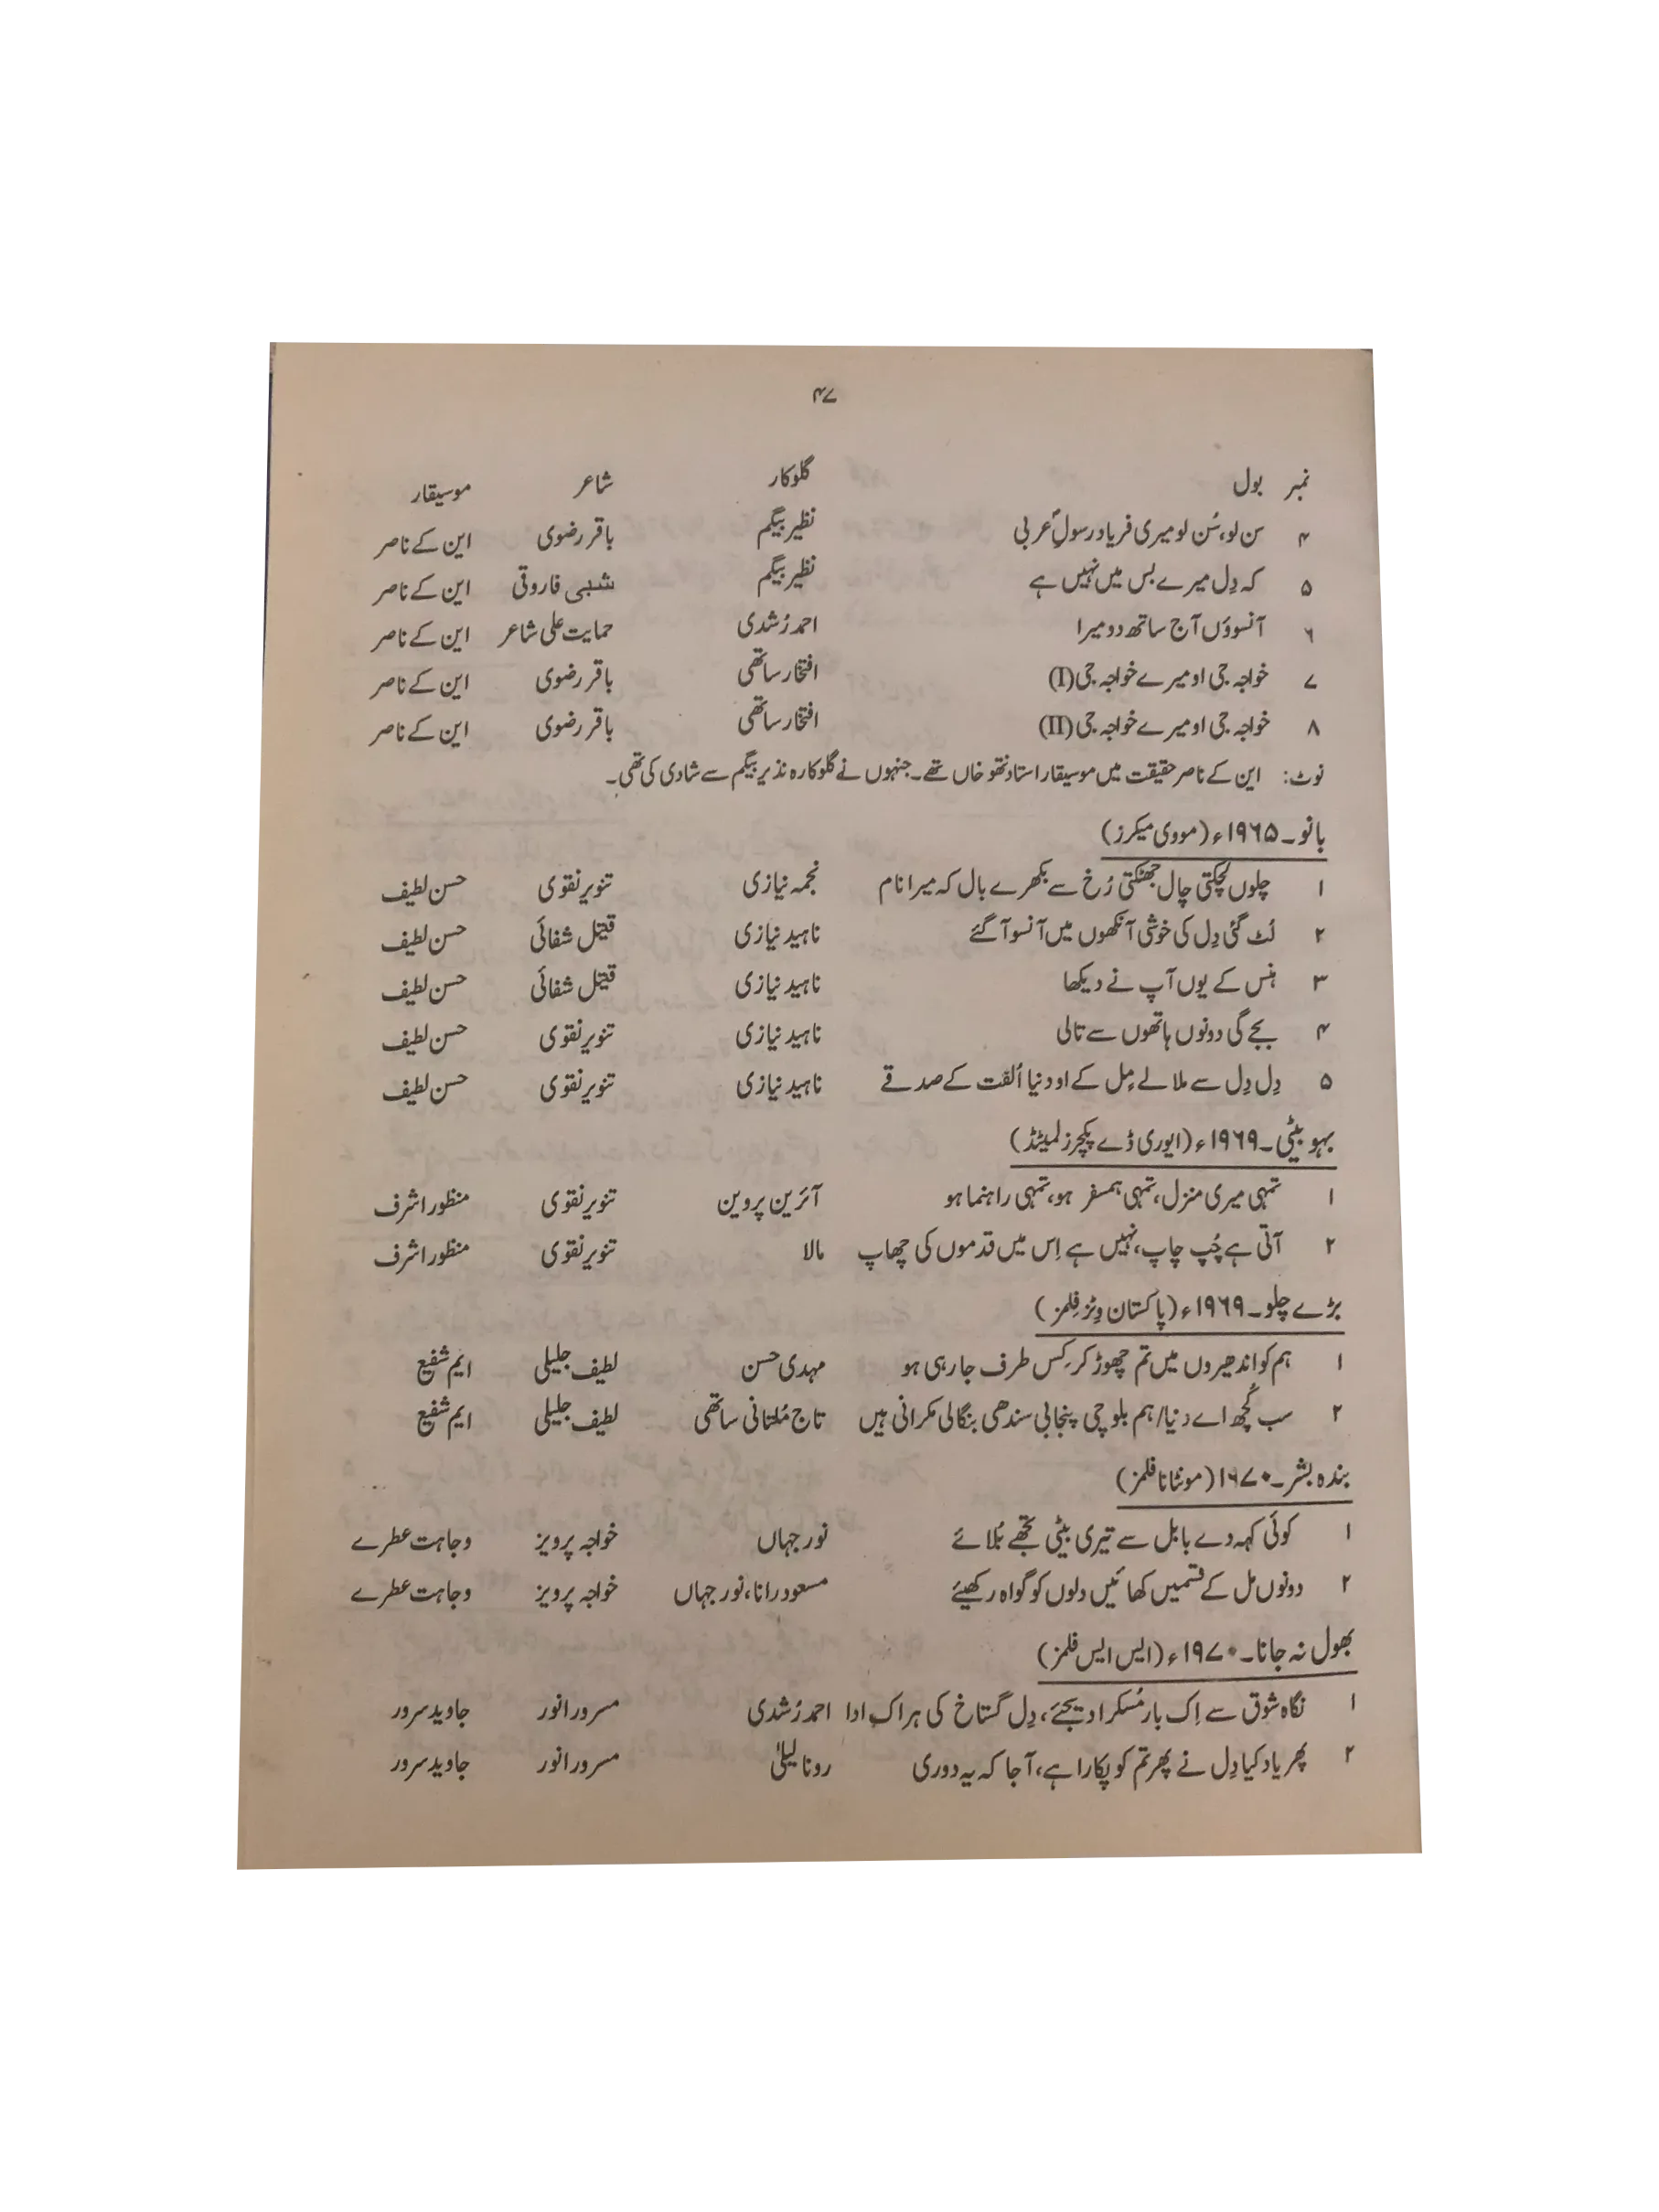 ۴۷
نمبر بول گلوکار شاعر موسیقار
۴ سن لو، سُن لو میری فریاد رسولِؐ عربی نظیر بیگم باقر رضوی این کے ناصر
۵ کہ دِل میرے بس میں نہیں ہے نظیر بیگم شبی فاروقی این کے ناصر
۶ آنسوؤں آج ساتھ دو میرا احمد رُشدی حمایت علی شاعر این کے ناصر
۷ خواجہ جی او میرے خواجہ جی (I) افتخار ساتھی باقر رضوی این کے ناصر
۸ خواجہ جی او میرے خواجہ جی (II) افتخار ساتھی باقر رضوی این کے ناصر
نوٹ: این کے ناصر حقیقت میں موسیقار استاد نتھو خاں تھے۔ جنہوں نے گلوکارہ نذیر بیگم سے شادی کی تھی۔
بانو۔ ۱۹۶۵ء (مووی میکرز)
۱ چلوں لچکتی چال جھٹکتی رُخ سے بکھرے بال کہ میرا نام نجمہ نیازی تنویر نقوی حسن لطیف
۲ لٹ گئی دِل کی خوشی آنکھوں میں آنسو آ گئے ناہید نیازی قتیل شفائی حسن لطیف
۳ ہنس کے یوں آپ نے دیکھا ناہید نیازی قتیل شفائی حسن لطیف
۴ بجے گی دونوں ہاتھوں سے تالی ناہید نیازی تنویر نقوی حسن لطیف
۵ دِل دِل سے ملالے مِل کے او دنیا اُلفت کے صدقے ناہید نیازی تنویر نقوی حسن لطیف
بہو بیٹی۔ ۱۹۶۹ء (ایوری ڈے پکچرز لمیٹڈ)
۱ تمہی میری منزل، تمہی ہمسفر ہو، تمہی راہنما ہو آئرین پروین تنویر نقوی منظور اشرف
۲ آتی ہے چُپ چاپ، نہیں ہے اِس میں قدموں کی چھاپ مالا تنویر نقوی منظور اشرف
بڑے چلو۔ ۱۹۶۹ء (پاکستان وِنز فِلمز)
۱ ہم کو اندھیروں میں تم چھوڑ کر کِس طرف جا رہی ہو مہدی حسن لطیف جلیلی ایم شفیع
۲ سب کُچھ اے دنیا/ہم بلوچی پنجابی سندھی بنگالی مکرانی ہیں تاج مُلتانی ساتھی لطیف جلیلی ایم شفیع
بندہ بشر۔ ۱۹۷۰ (مونٹانا فلمز)
۱ کوئی کہہ دے بابل سے تیری بیٹی تجھے بُلائے نور جہاں خواجہ پرویز وجاہت عطرے
۲ دونوں مل کے قسمیں کھائیں دلوں کو گواہ رکھیئے مسعود رانا، نور جہاں خواجہ پرویز وجاہت عطرے
بھول نہ جانا۔ ۱۹۷۰ء (ایس ایس فلمز)
۱ نگاہ شوق سے اِک بار مُسکرا دیجئے، دِل گستاخ کی ہر اک ادا احمد رُشدی مسرور انور جاوید سرور
۲ پھر یاد کیا دِل نے پھر تم کو پکارا ہے، آ جا کہ یہ دوری رونا لیلیٰ مسرور انور جاوید سرور